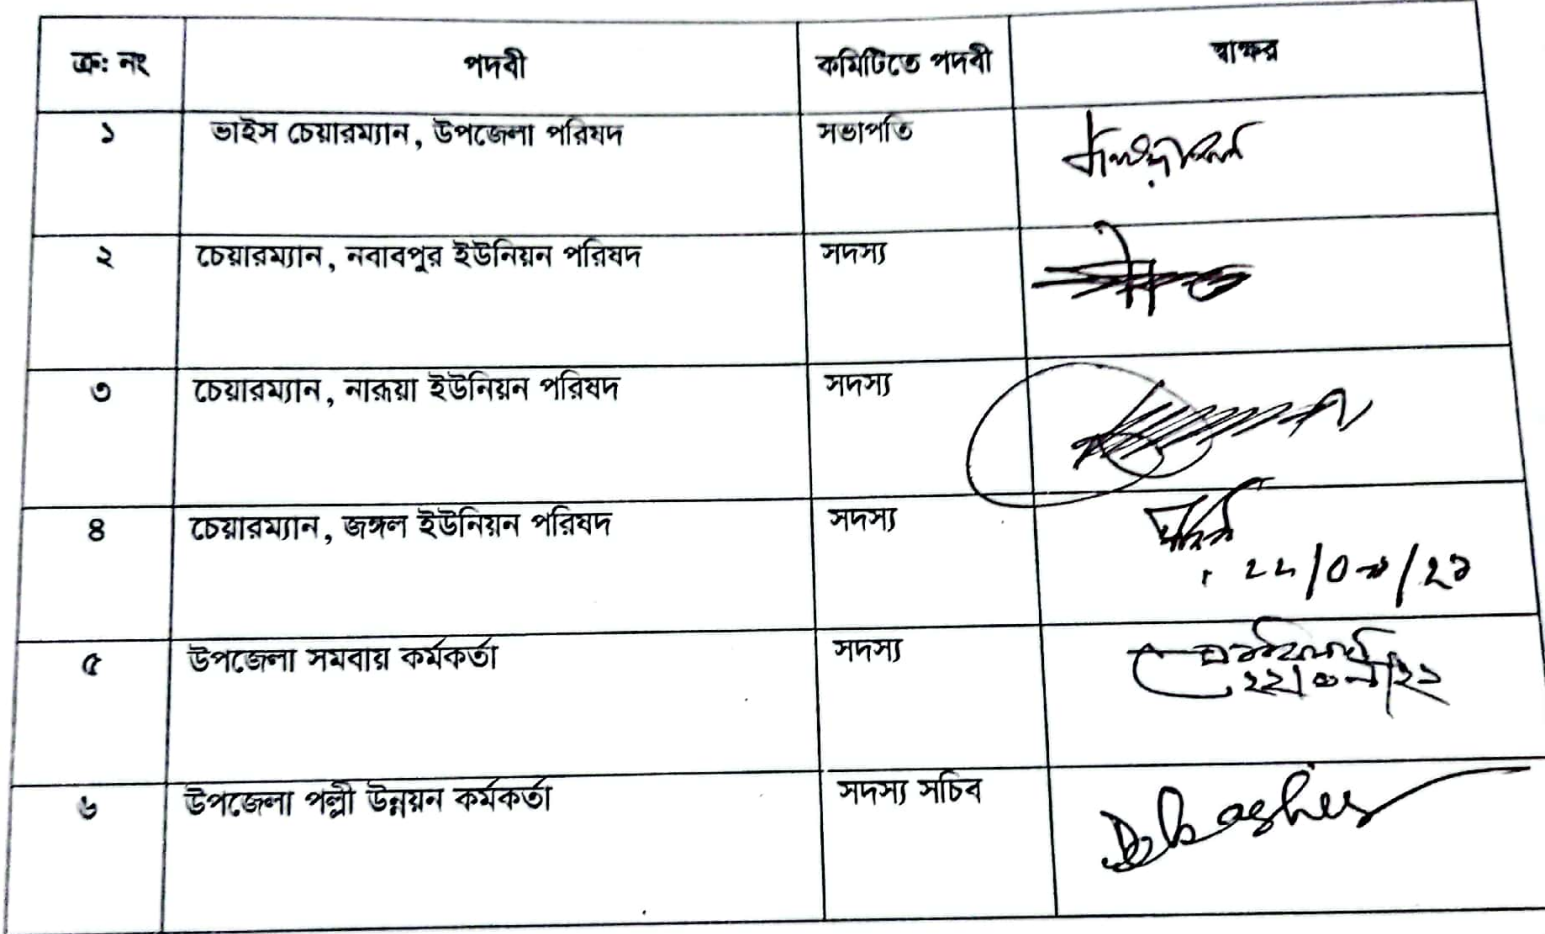 ক্র: নং পদবী কমিটিতে পদবী স্বাক্ষর
১ ভাইস চেয়ারম্যান, উপজেলা পরিষদ সভাপতি
২ চেয়ারম্যান, নবাবপুর ইউনিয়ন পরিষদ সদস্য
৩ চেয়ারম্যান, নারুয়া ইউনিয়ন পরিষদ সদস্য
৪ চেয়ারম্যান, জঙ্গল ইউনিয়ন পরিষদ সদস্য
৫ উপজেলা সমবায় কর্মকর্তা সদস্য
৬ উপজেলা পল্লী উন্নয়ন কর্মকর্তা সদস্য সচিব